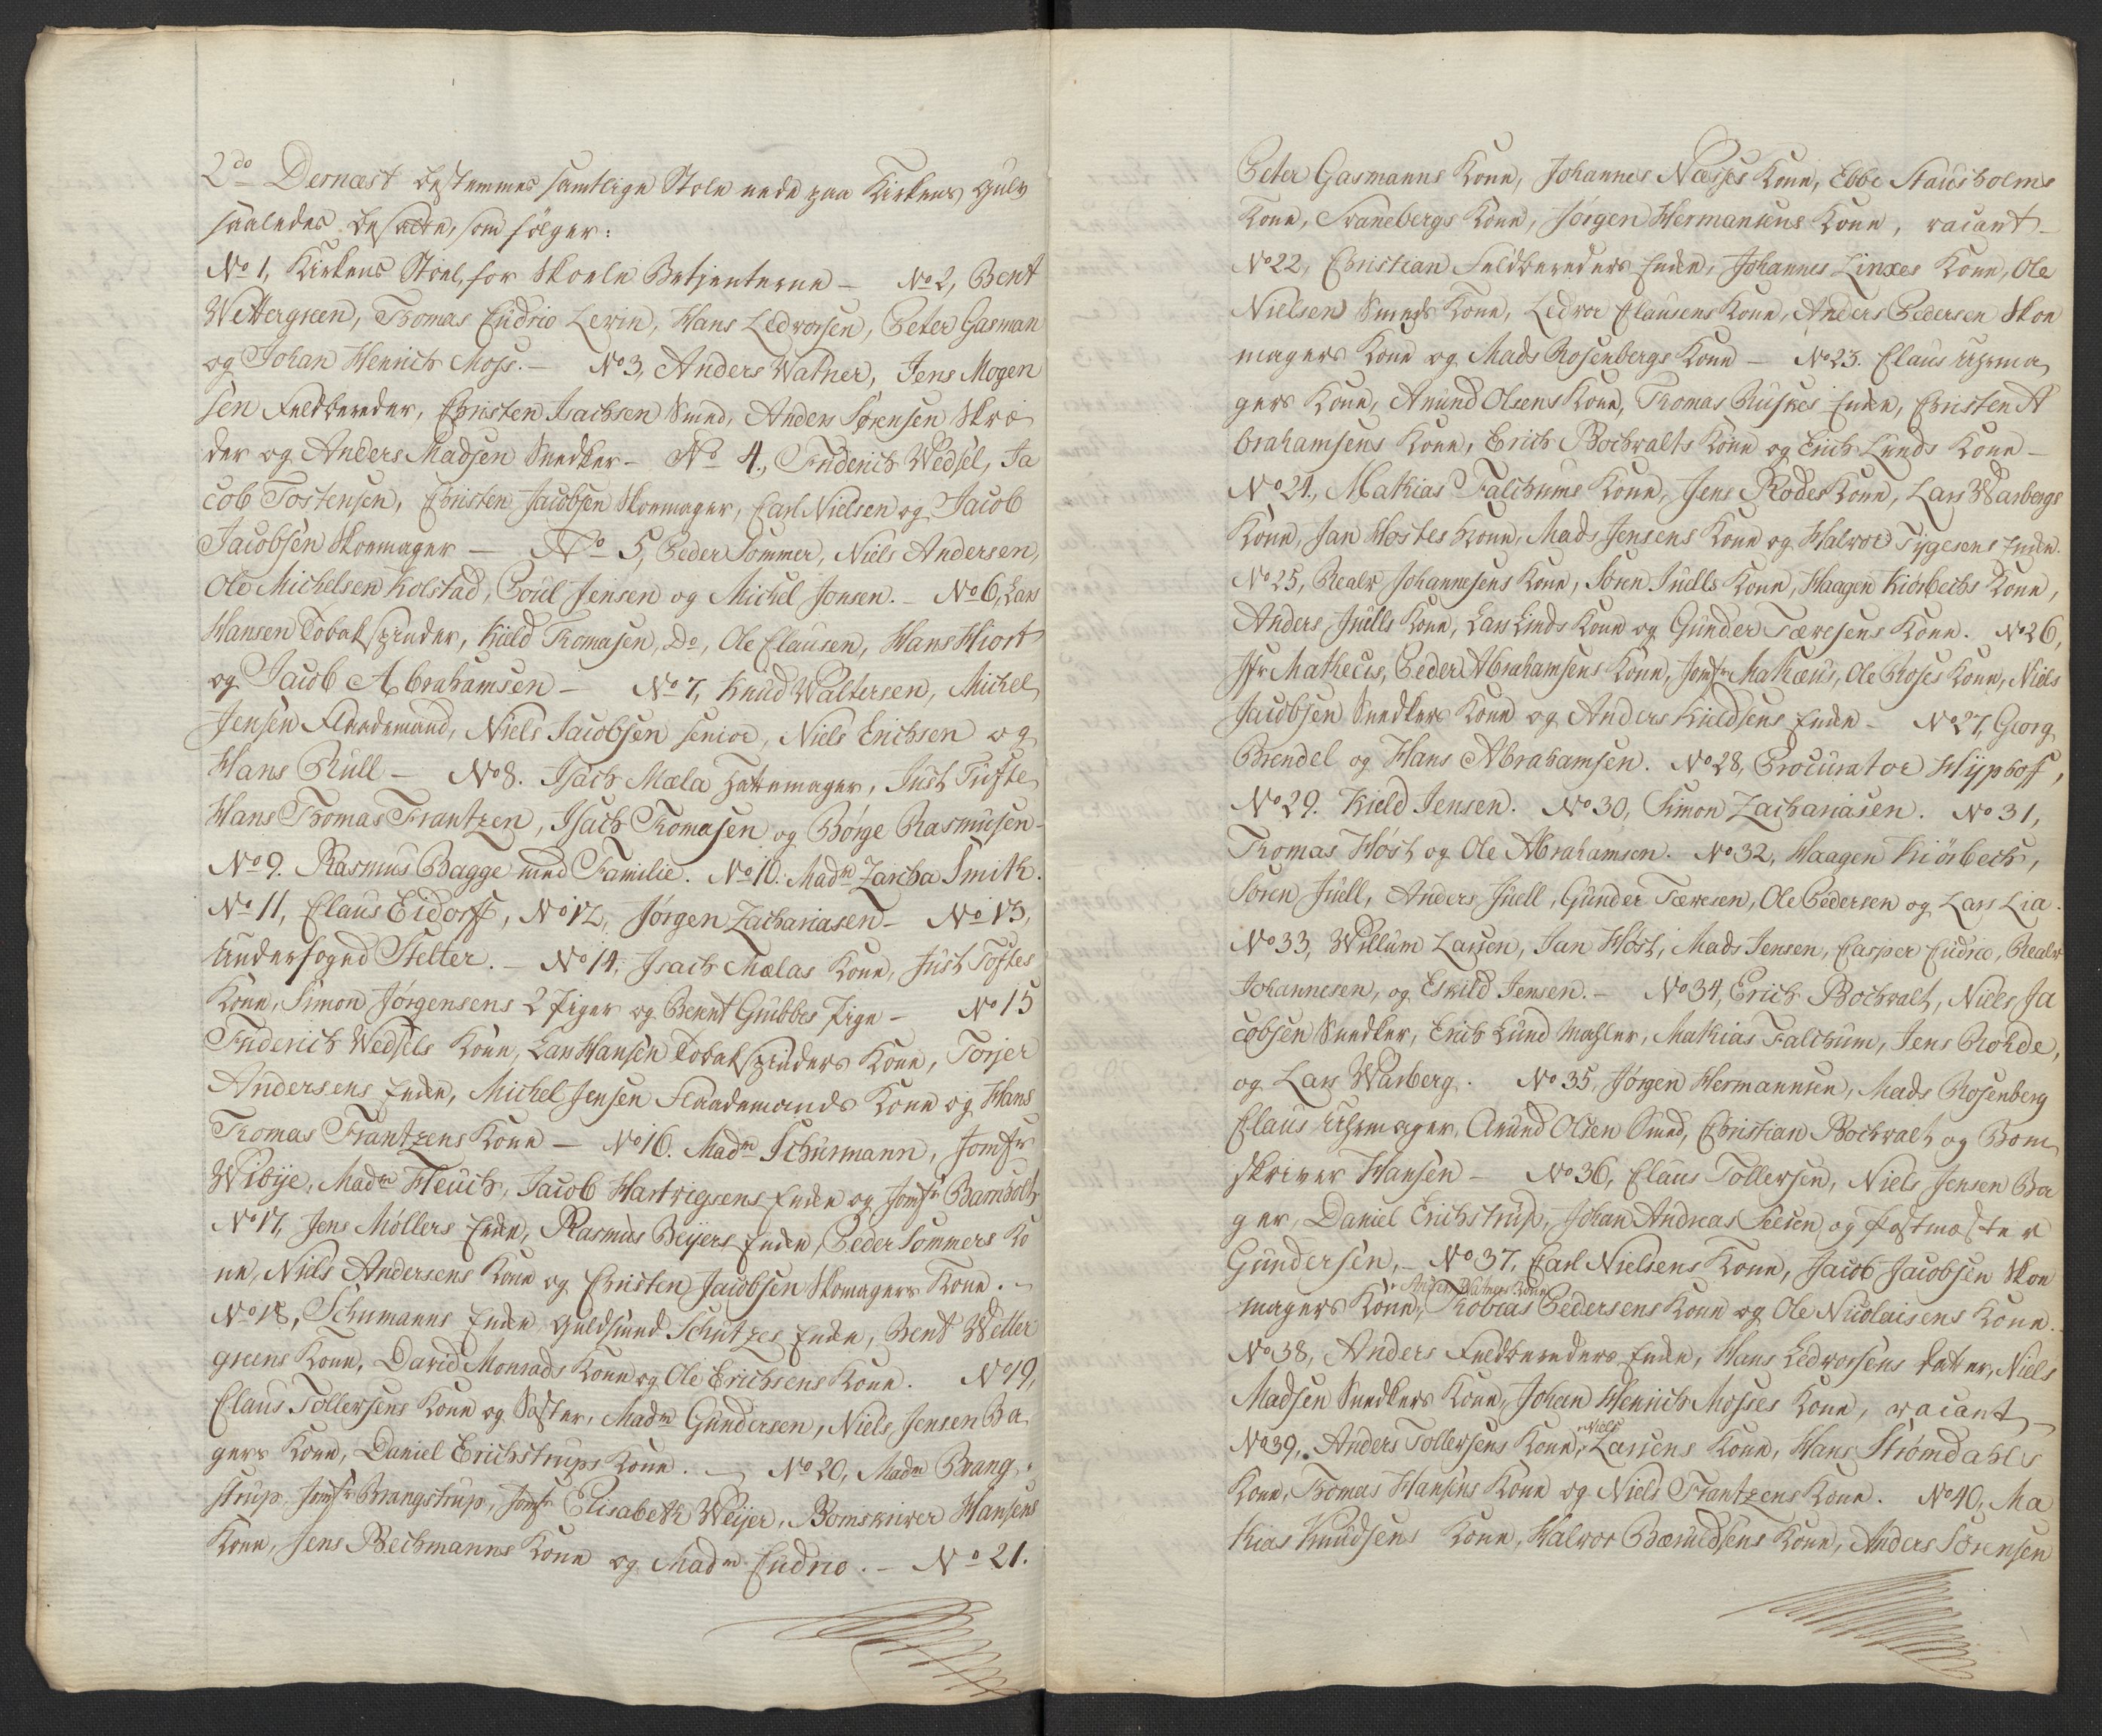 2do Dernæst bestemmes samtlige Stole nede paa Kirkens Gulv
saaledes besatte, som følger:
No 1, Kirkens Stoel, for Skoele Betjenterne – No 2, Bent
Wettergreen, Thomas Cudrio Levin, Hans Ledvorsen, Peter Gasman
og Johan Henrich Moss. – No 3, Anders Watner, Jens Mogen
sen Feldbereder, Christen Isachsen Smed, Anders Sørensen Skræ
der og Anders Madsen Snedker – No 4, Friderich Wedsel, Ja
cob Tostensen, Christen Jacobsen Skoemager, Carl Nielsen og Jacob
Jacobsen Skoemager – No 5, Peder Sommer, Niels Andersen,
Ole Michelsen Kolstad, Poul Jensen og Michel Jonsen. – No 6, Lars
Hansen Tobakspinder, Kield Thomasen, Do, Ole Clausen, Hans Hiort
og Jacob Abrahamsen – No 7, Knud Waltersen, Michel
Jensen Flaademand, Niels Jacobsen senior, Niels Erichsen og
Hans Rull – No 8. Isach Mæla Hattemager, Just Tufte
Hans Thomas Frantzen, Isach Thomasen og Børge Rasmusen –
No 9. Rasmus Bagge med Familie. No 10. Madm Zarcha Smith.
No 11, Claus Eidorff, No 12, Jørgen Zachariasen – No 13,
Underfoged Stelter. – No 14, Isach Mælas Kone, Just Toftes
Kone, Simon Jørgensens 2 Piger og Bernt Grubbes Pige – No 15
Friderich Wedsels Kone, Lars Hansen Tobakspinders Kone, Torjer
Andersens Enke, Michel Jensen Flaademands Kone og Hans
Thomas Frantzens Kone – No 16. Madm Schurmann, Jomfr
Wibye, Madm Heuch, Jacob Hartvigsens Enke og Jomfr Barnholt
No 17, Jens Møllers Enke, Rasmus Beijers Enke, Peder Sommers Ko
ne, Niels Andersens Kone og Christen Jacobsen Skomagers Kone. –
No 18, Schumanns Enke Guldsmed Schutzes Enke, Bent Wetter
greens Kone, David Monrads Kone og Ole Erichsens Kone. No 19,
Claus Tollersens Kone og Søster, Madm Gundersen, Niels Jensen Ba
gers Kone, Daniel Erichstrups Kone. – No 20, Madm Brang
strup, Jomfr Brangstrup, Jomfr Elisabeth Weijer, Bomskriver Hansens
Kone, Jens Bechmanns Kone og Madm Cudrio. – No 21.
Peter Gasmanns Kone, Johannes Næsses Kone, Ebbe Stausholms
Kone, Svanebergs Kone, Jørgen Hermansens Kone, vacant –
No 22, Christian Feldbereders Enke, Johannes Linxes Kone, Ole
Nielsen Smeds Kone, Ledvor Clausens Kone, Anders Pedersen Skoe
magers Kone og Mads Rosenbergs Kone – No 23. Claus Uhrma
gers Kone, Amund Olsens Kone, Thomas Ruskes Enke, Christen A
brahamsens Kone, Erich Bochvalts Kone og Erich Lunds Kone –
No 24, Mathias Falchums Kone, Jens Rodes Kone, Lars Warbergs
Kone, Jan Høstes Kone, Mads Jensens Kone og Halvor Tygesens Enke.
No 25, Realv Johannesens Kone, Søren Juells Kone, Haagen Kiørbechs Kone,
Anders Juells Kone, Lars Linds Kone og Gunder Tæresens Kone. No 26,
Jfr Mathecis, Peder Abrahamsens Kone, Jomfr Mathæus, Ole Roses Kone, Niels
Jacobsen Snedkers Kone og Anders Kieldsens Enke – No 27, Georg
Brendel og Hans Abrahamsen. No 28, Procurator Hyphoff,
No 29. Kield Jensen. No 30, Simon Zachariasen. No 31,
Thomas Høst og Ole Abrahamsen. No 32, Haagen Kiørbech,
Søren Juell, Anders Juell, Gunder Tæresen, Ole Pedersen og Lars Lia.
No 33, Willum Larsen, Jan Høst, Mads Jensen, Casper Cudrio, Realv
Johannesen, og Eskild Jensen. – No 34, Erich Bochvalt, Niels Ja
cobsen Snedker, Erich Lund Mahler, Mathias Falchum, Jens Rohde,
og Lars Warberg. No 35, Jørgen Hermannsen, Mads Rosenberg
Claus Uhrmager, Amund Olsen Smed, Christian Bochvalt og Bom
skriver Hansen – No 36, Claus Tollersen, Niels Jensen Ba
ger, Daniel Erichstrup, Johan Andreas Seesen og Postmester
Gundersen, – No 37, Carl Nielsens Kone, Jacob Jacobsen Skoe
Anders Watners Kone
magers Kone, Tobias Pedersens Kone og Ole Nicolaisens Kone.
No 38, Anders Feldbereders Enke, Hans Ledvorsens Datter, Niels
Madsen Snedkers Kone, Johan Henrich Mosses Kone, vacant –
No 39, Anders Tollersens Kone, Niels Larsens Kone, Hans Strømdahls
Kone, Thomas Hansens Kone og Niels Frantzens Kone. No 40, Ma
thias Knudsens Kone, Halvor Bæruldsens Kone, Anders Sørensen